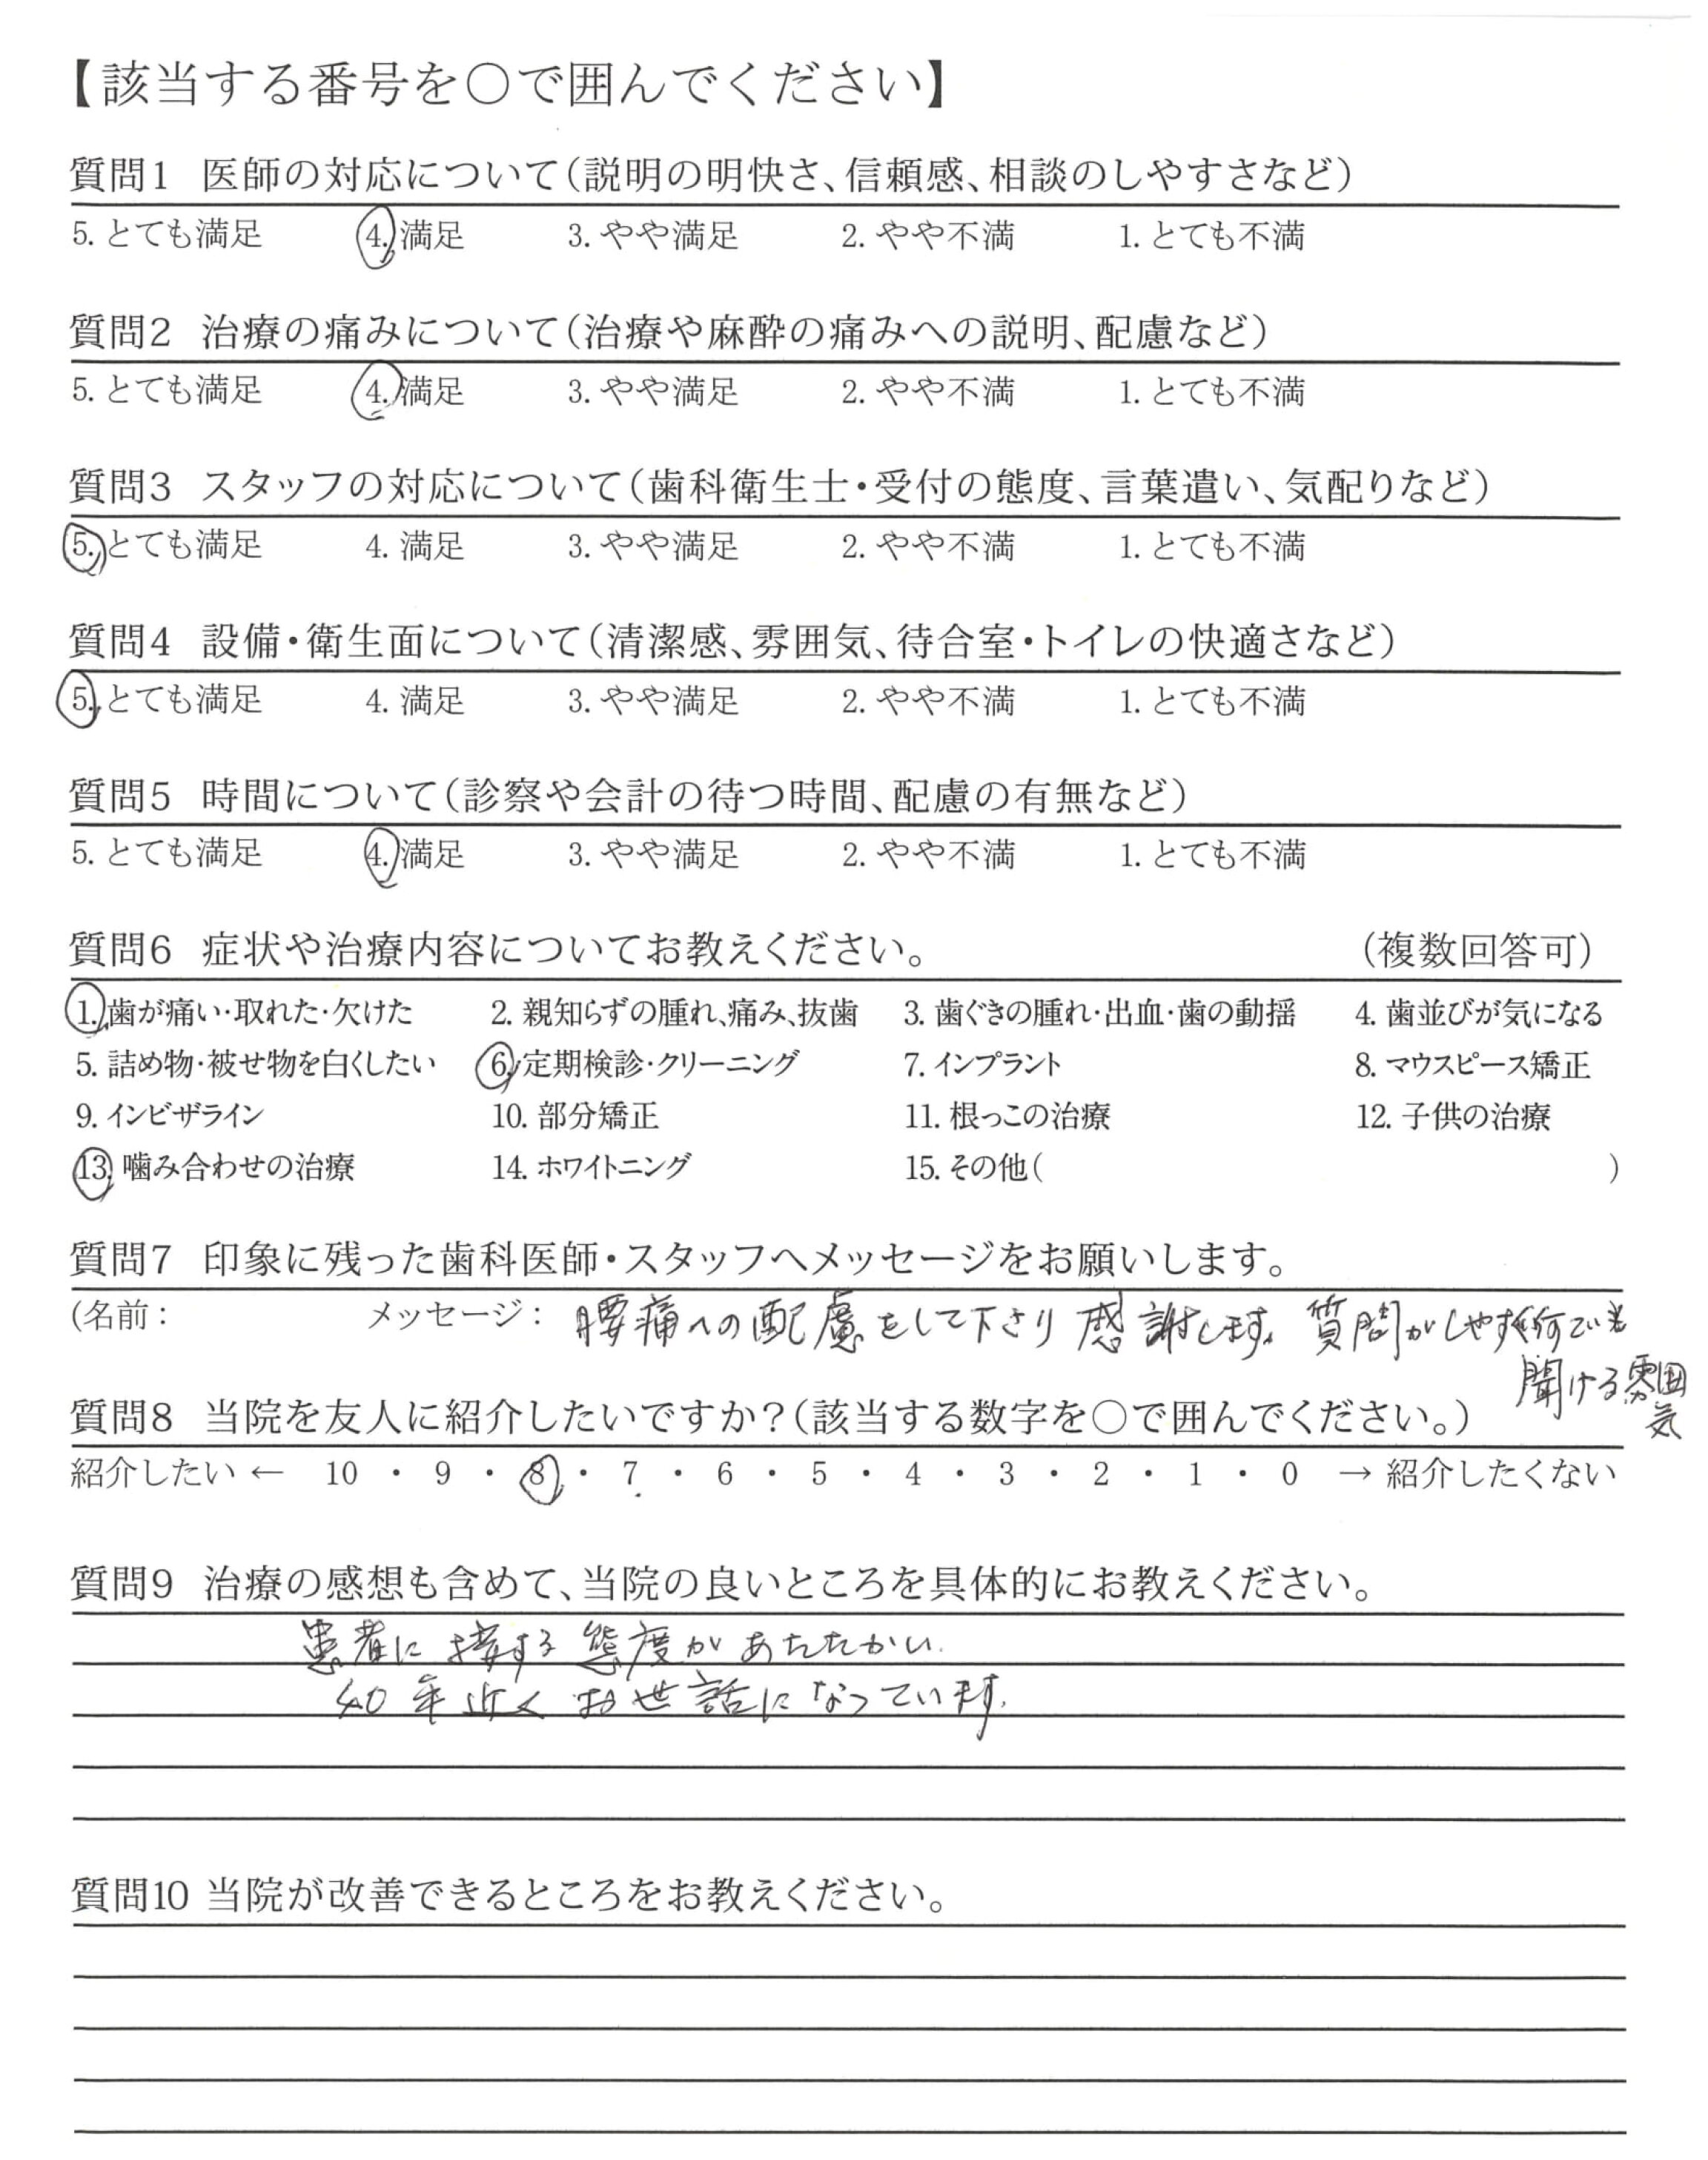 【該当する番号を○で囲んでください】
質問1 医師の対応について(説明の明快さ、信頼感、相談のしやすさなど)
5. とても満足 4. 満足 3. やや満足 2. やや不満 1. とても不満
質問2 治療の痛みについて(治療や麻酔の痛みへの説明、配慮など)
5. とても満足 4. 満足 3. やや満足 2. やや不満 1. とても不満
質問3 スタッフの対応について(歯科衛生士・受付の態度、言葉遣い、気配りなど)
5. とても満足 4. 満足 3. やや満足 2. やや不満 1. とても不満
質問4 設備・衛生面について(清潔感、雰囲気、待合室・トイレの快適さなど)
5. とても満足 4. 満足 3. やや満足 2. やや不満 1. とても不満
質問5 時間について(診察や会計の待つ時間、配慮の有無など)
5. とても満足 4. 満足 3. やや満足 2. やや不満 1. とても不満
質問6 症状や治療内容についてお教えください。 (複数回答可)
1. 歯が痛い・取れた・欠けた 2. 親知らずの腫れ、痛み、抜歯 3. 歯ぐきの腫れ・出血・歯の動揺 4. 歯並びが気になる
5. 詰め物・被せ物を白くしたい 6. 定期検診・クリーニング 7. インプラント 8. マウスピース矯正
9. インビザライン 10. 部分矯正 11. 根っこの治療 12. 子供の治療
13. 噛み合わせの治療 14. ホワイトニング 15. その他( )
質問7 印象に残った歯科医師・スタッフへメッセージをお願いします。
(名前: メッセージ: 腰痛への配慮をして下さり感謝します。質問がしやすく何でも
聞ける雰囲
気
質問8 当院を友人に紹介したいですか?(該当する数字を○で囲んでください。)
紹介したい ← 10 ・ 9 ・ 8 ・ 7 ・ 6 ・ 5 ・ 4 ・ 3 ・ 2 ・ 1 ・ 0 → 紹介したくない
質問9 治療の感想も含めて、当院の良いところを具体的にお教えください。
患者に接する態度があたたかい.
40年近くお世話になっています.
質問10 当院が改善できるところをお教えください。